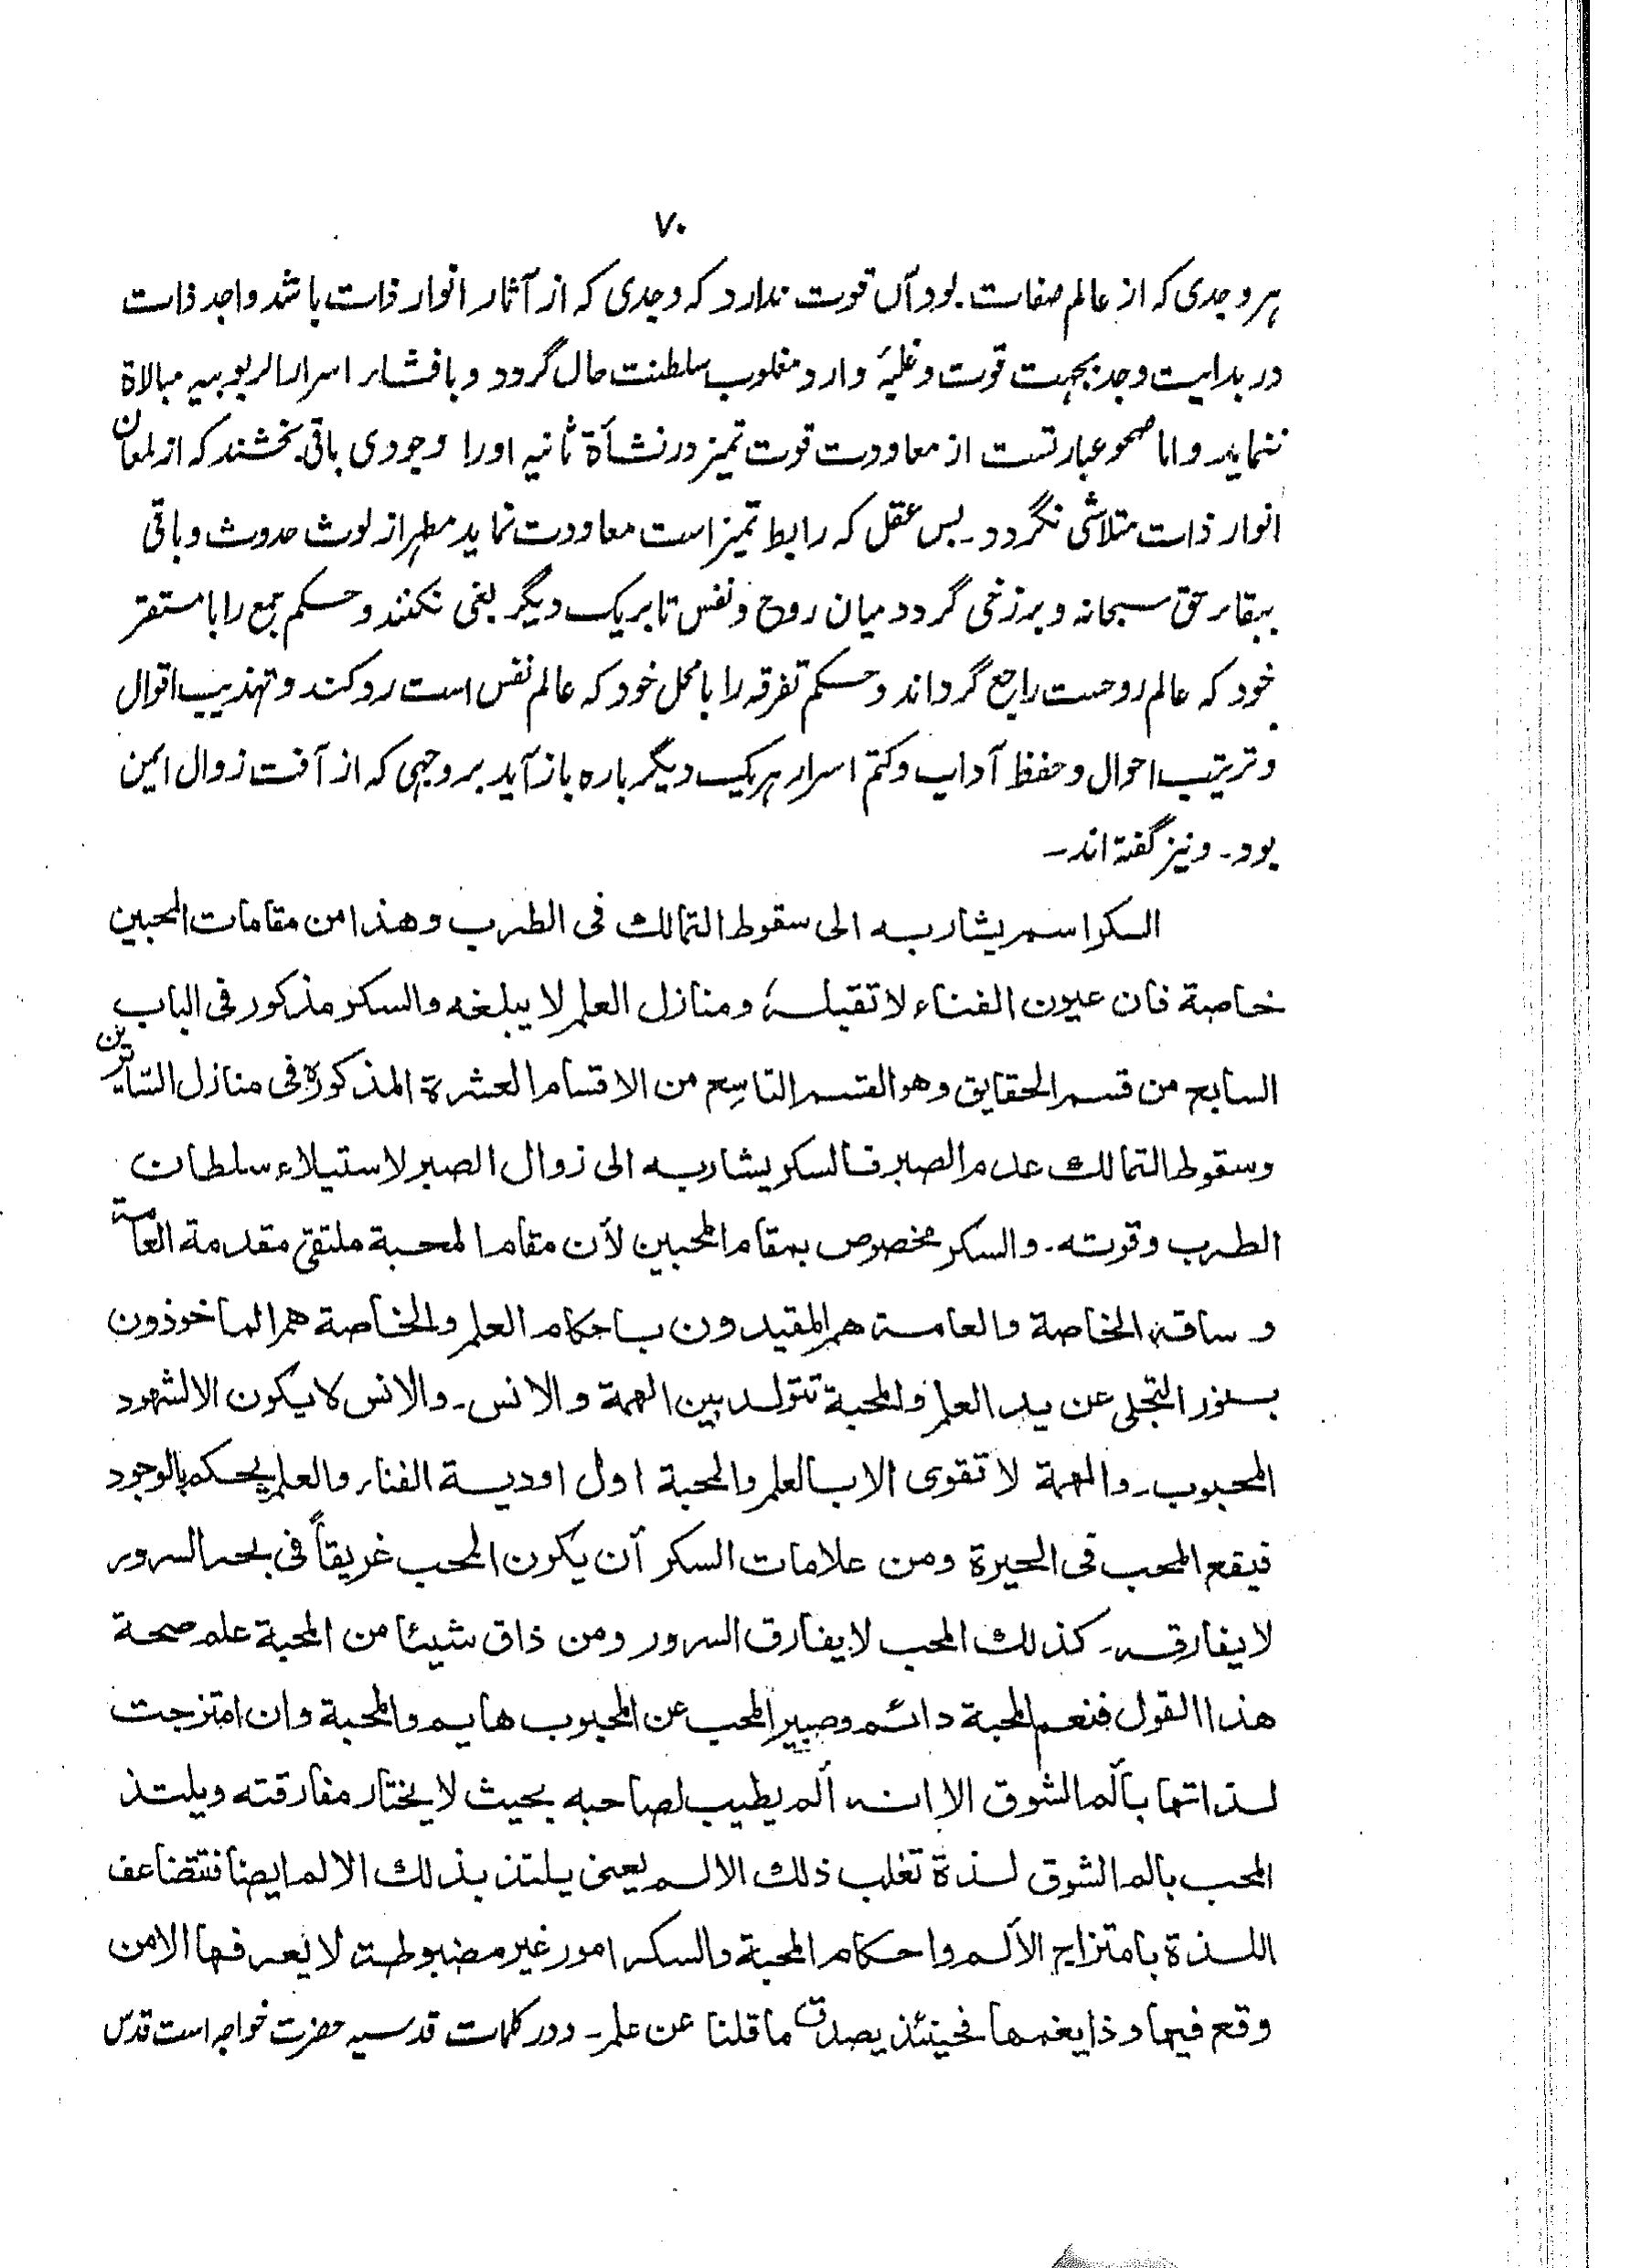 ۷۰
ہر وجدی که از عالم صفات بود آں قوت ندارد که وجدی که از آثار انوار ذات باشد واجد ذات
در بدایت وجد بجہت قوت و غلبۂ وارد مغلوب سلطنت حال گردد و بافشاء اسرار الربوبیہ مبالاة
ننماید و اما صحو عبارتست از معاودت قوت تمیز در نشأة ثانیہ اورا وجودی باقی بخشند که از لمعان
انوار ذات متلاشی نگردد۔ پس عقل که رابط تمیز است معاودت نماید مطہر از لوث حدوث و باقی
ببقاء حق سبحانہ و برزخی گردد میان روح و نفس تا بریک دیگر بغی نکنند و حکم جمع را با مستقر
خود که عالم روحست راجع گرداند و حکم تفرقہ را با محل خود که عالم نفس است رد کند و تهذیب اقوال
و ترتیب احوال و حفظ آداب و کتم اسرار ہریک دیگر بارہ باز آید بر وجہی که از آفت زوال ایمن
بود۔ و نیز گفتہ اند۔
السکر اسم یشار بہ الی سقوط التمالک فی الطرب و ھذا من مقامات المحبین
خاصة فان عیون الفناء لا تقبلہ و منازل العلم لا یبلغہ والسکر مذکور فی الباب
السابع من قسم الحقایق وھو القسم التاسع من الاقسام العشرة المذکورة فی منازل السائرین
وسقوط التمالک عدم الصبر فالسکر یشار بہ الی زوال الصبر لاستیلاء سلطان
الطرب وقوتہ۔ والسکر مخصوص بمقام المحبین لأن مقام المحبة ملتقی مقدمة العامة
و ساقة الخاصة والعامة ھم المقیدون باحکام العلم والخاصة ھم الماخوذون
بنور التجلی عن ید العلم والمحبة تتولد بین الھمة والانس۔ والانس لا یکون الا لشھود
المحبوب۔ والھمة لا تقوی الا بالعلم والمحبة اول اودیة الفناء والعلم یحکم بالوجود
فیقع المحب فی الحیرة ومن علامات السکر أن یکون المحب غریقاً فی بحر السرور
لا یفارقہ۔ کذلک المحب لا یفارق السرور ومن ذاق شیئا من المحبة علم صحة
ھذا القول فنعم المحبة دائم وصبر المحب عن المحبوب ھایم والمحبة وان امتزجت
لذاتھا بألم الشوق الا انہ ألم یطیب لصاحبہ بحیث لا یختار مفارقتہ ویلتذ
المحب بالم الشوق لذة تغلب ذلک الالم یعنی یلتذ بذلک الالم ایضا فتتضاعف
اللذة بامتزاج الألم واحکام المحبة والسکر امور غیر مضبوطة لا یعرفھا الا من
وقع فیھا و ذا یغمھا فحینئذ یصدق ما قلنا عن علم۔ و در کلمات قدسیہ حضرت خواجہ است قدس